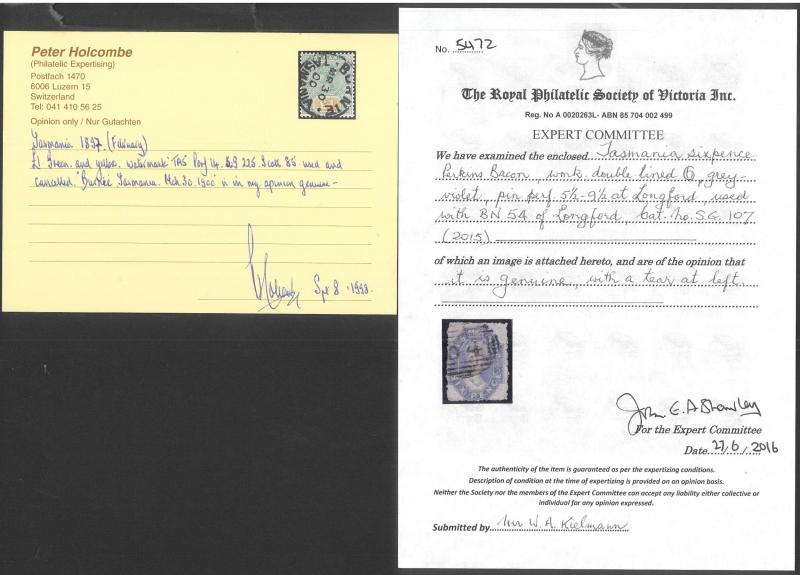 Peter Holcombe
(Philatelic Expertising)
Postfach 1470
6006 Luzern 15
Switzerland
Tel: 041 410 56 25
Opinion only / Nur Gutachten
BURNIE
MR 30
00
TASMANIA
Tasmania 1897 (February)
Lt Green and yellow. watermark TAS Perf 14. SG 225. Scott 85. used and
cancelled "Burnie Tasmania. Mch 30. 1900" is in my opinion genuine-
Holcombe Spt 8. 1998.
No. 5472
The Royal Philatelic Society of Victoria Inc.
Reg. No A 0020263L- ABN 85 704 002 499
EXPERT COMMITTEE
We have examined the enclosed Tasmania sixpence
Perkins Bacon, wmk. double lined 6, grey-
violet, pin perf 5½-9½ at Longford, used
with BN 54 of Longford, Cat. No. S.G. 107
(2015)
of which an image is attached hereto, and are of the opinion that
it is genuine, with a tear at left.
John E. A
For the Expert Committee
Date 27/6/2016
The authenticity of the item is guaranteed as per the expertizing conditions.
Description of condition at the time of expertizing is provided on an opinion basis.
Neither the Society nor the members of the Expert Committee can accept any liability either collective or
individual for any opinion expressed.
Submitted by Mr W. A. Kielmann